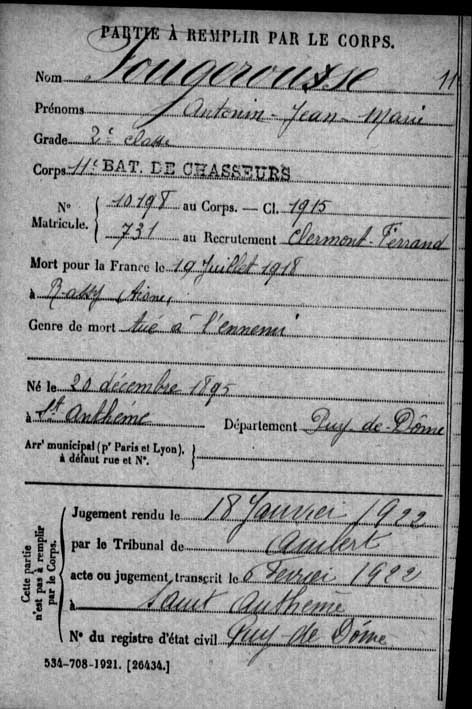 PARTIE À REMPLIR PAR LE CORPS.
Nom Fougerousse
Prénoms Antonin-Jean-Marie
Grade 2e classe
Corps 11e BAT. DE CHASSEURS
N° 10198 au Corps. — Cl. 1915
Matricule. 731 au Recrutement Clermont-Ferrand
Mort pour la France le 19 Juillet 1918
à Aisne
Genre de mort tué à l'ennemi
Né le 20 décembre 1895
à St Anthème Département Puy-de-Dôme
Arrt municipal (pr Paris et Lyon),
à défaut rue et N°.
Cette partie
n'est pas à remplir
par le Corps.
Jugement rendu le 18 Janvier 1922
par le Tribunal de Ambert
acte ou jugement transcrit le 6 Fevrier 1922
à Saint Anthème
N° du registre d'état civil Puy-de Dôme
534-708-1921. [26434.]